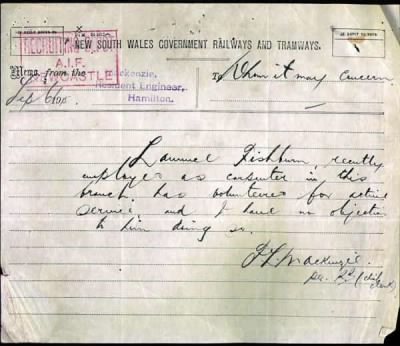 NEW SOUTH WALES GOVERNMENT RAILWAYS AND TRAMWAYS.
RECRUITING
A.I.F.
NEWCASTLE
Memo. from the
Mackenzie,
Resident Engineer,
Hamilton.
To Whom it may concern
Fishburn, recently
employed as carpenter in this
branch, has volunteered for active
service, and I have no objection
to him doing so.
Mackenzie